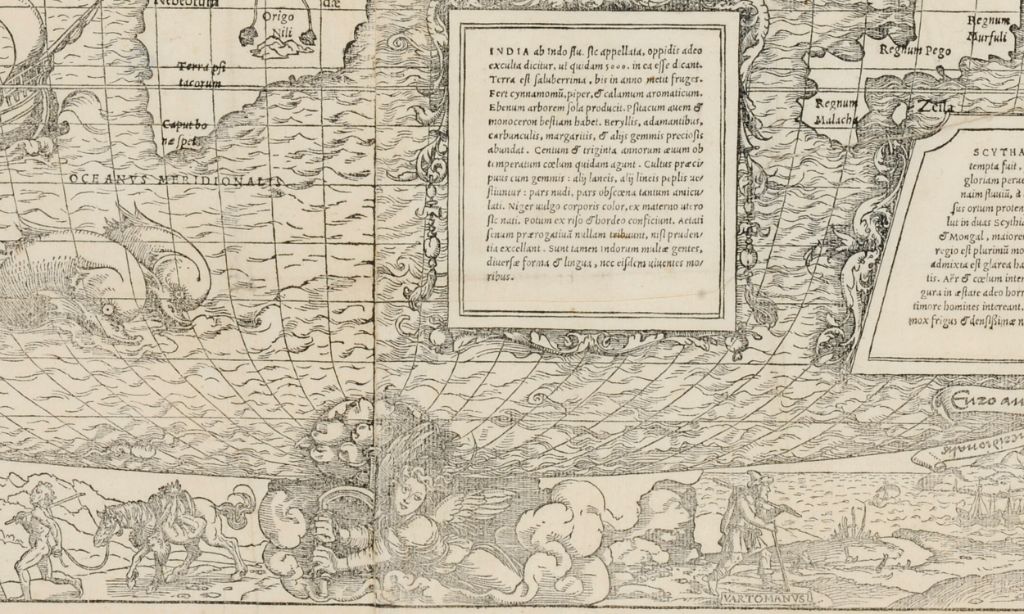 Origo
Nili
Terra psi
tacorum
Caput bo
næ spei
OCEANVS MERIDIONALIS
INDIA ab Indo flu. sic appellata, oppidis adeo
exculta dicitur, ut quidam 5000. in ea esse dicant.
Terra est saluberrima, bis in anno metit fruges.
Fert cynnamomũ, piper, & calamum aromaticum.
Ebenum arborem sola producit. Psitacum auem &
monoceron bestiam habet. Beryllis, adamantibus,
carbunculis, margaritis, & alijs gemmis preciosis
abundat. Centum & triginta annorum æuum ob
temperatum cœlum quidam agunt. Cultus præci
puus cum gemmis: alij laneis, alij lineis peplis ue
stiuntur: pars nudi, pars obscœna tantum amicu
lati. Niger uulgo corporis color, ex materno utero
sic nati. Potum ex riso & hordeo conficiunt. Aetati
senum prærogatiuã nullam tribuunt, nisi pruden
tia excellant. Sunt tamen Indorum multæ gentes,
diuersæ forma & lingua, nec eisdem uiuentes mo
ribus.
Regnum
Murfuli
Regnum Pego
Regnum
Malacha
Zeila
SCYTHA
tempta fuit,
gloriam perue
naim fluuiũ, a
sus ortum proten
lut in duas Scythi
& Mongal, maiorem
regio est plurimũ mo
admixta est glarea ha
tis. Aër & cœlum inter
gura in æstate adeo horr
timore homines intereant.
mox frigus & densissimæ n
Euro au
VARTOMANVS